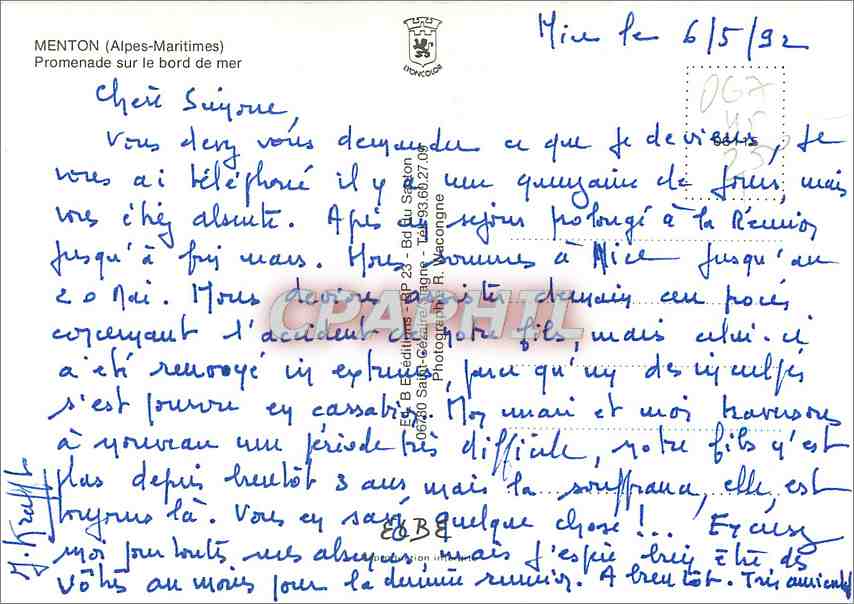 MENTON (Alpes-Maritimes)
Promenade sur le bord de mer
LYONCOLOR
Nice le 6/5/92
067
45
25
06115
Chère Simone,
Vous devez vous demander ce que je deviens, je
vous ai téléphoné il y a une quinzaine de jours, mais
vous étiez absente. Après un séjour prolongé à la Réunion
jusqu'à fin mars. Nous sommes à Nice jusqu'au
20 Mai. Nous devions assister demain au procès
concernant l'accident de notre fils, mais celui-ci
a été renvoyé in extremis, parce qu'un des inculpés
s'est pourvu en cassation. Mon mari et moi traversons
à nouveau une période très difficile, notre fils n'est
plus depuis bientôt 3 ans, mais la souffrance, elle, est
toujours là. Vous en savez quelque chose !... Excusez
moi pour toutes mes absences, mais j'espère bien être des
vôtres au moins pour la dernière réunion. A bientôt. Très amicalement
J. Krafft
Ed. B Expéditions - BP 23 - Bd du Santon
06780 Saint-Cézaire/Siagne - Tél. 93.60.27.09
Photographe R. Wacongne
EDBE
Reproduction interdite
CPAPHIL